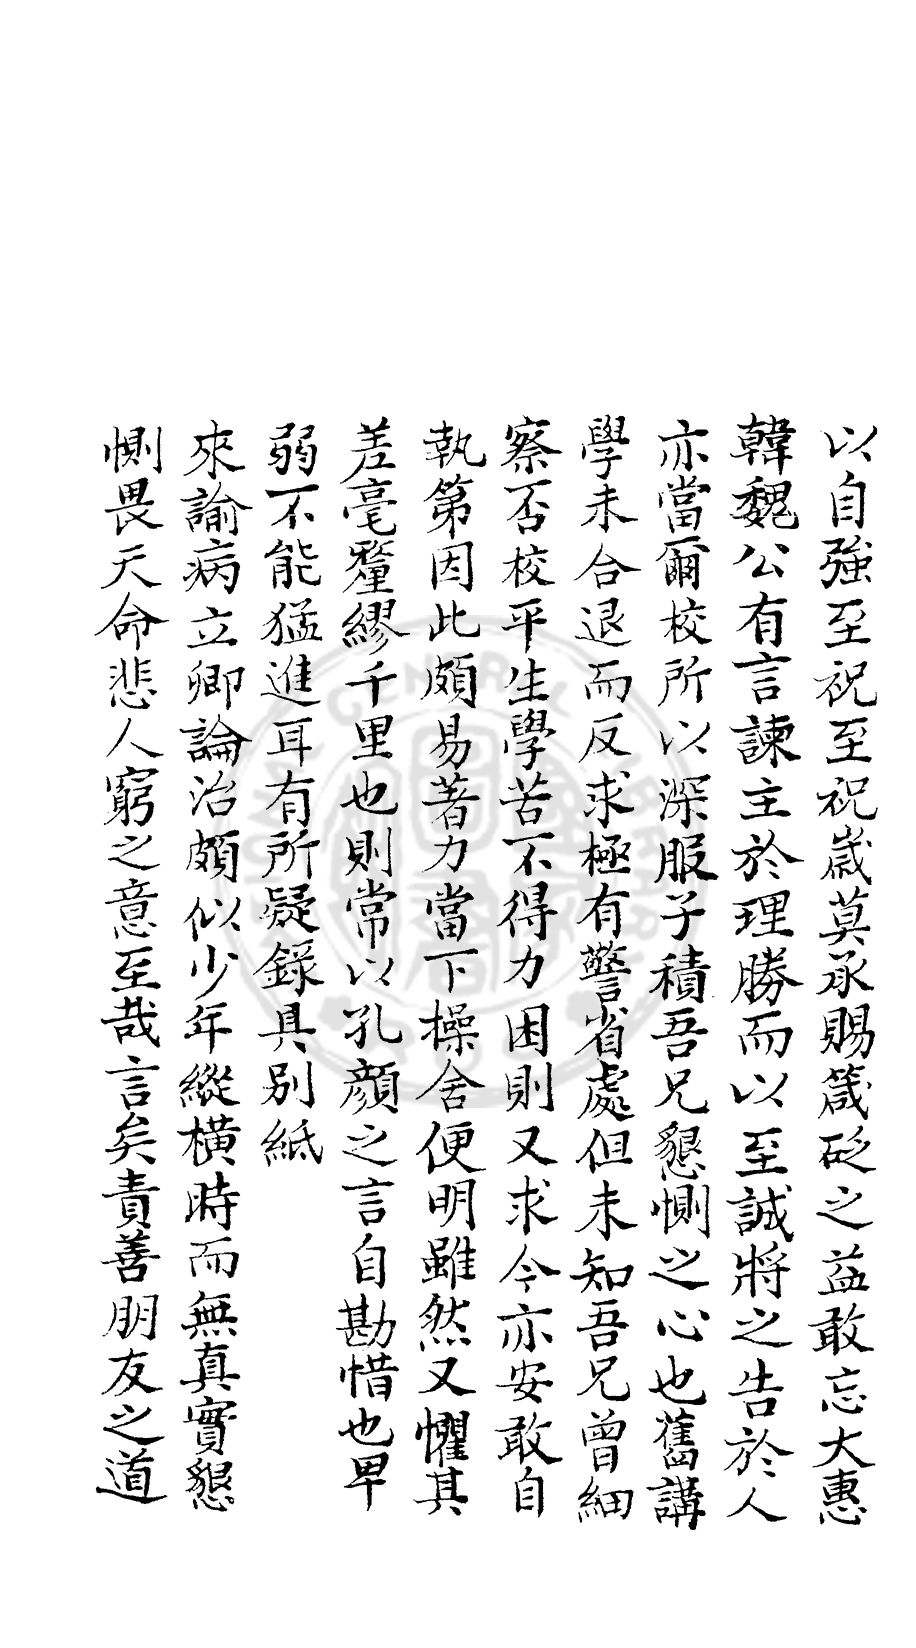 以自強至祝至祝嵗莫承賜箴砭之益敢忘大惠
韓魏公有言諫主於理勝而以至誠將之告於人
亦當爾校所以深服子積吾兄懇惻之心也舊講
學未合退而反求極有警省處但未知吾兄曾細
察否校平生學苦不得力困則又求今亦安敢自
執第因此頗易著力當下操舍便明雖然又懼其
差毫釐繆千里也則常以孔顔之言自勘惜也早
弱不能猛進耳有所疑録具别紙
來諭病立卿論治頗似少年縱横時而無真實懇
惻畏天命悲人窮之意至哉言矣責善朋友之道